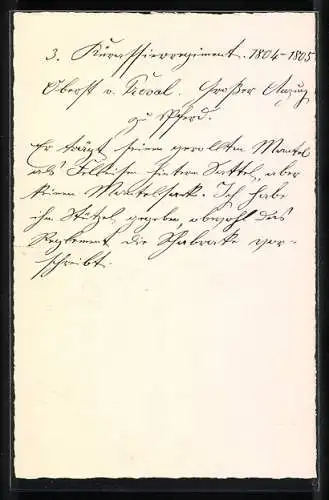 3. Kürassierregiment. 1804–1805
Oberst v. Préval. Großer Anzug
zu Pferd.
Er trägt seinen gerollten Mantel
als Felleisen hinterm Sattel, aber
keinen Mantelsack. Ich habe
ihm Stützel gegeben, obwohl das
Reglement die Schabracke vor-
schreibt.